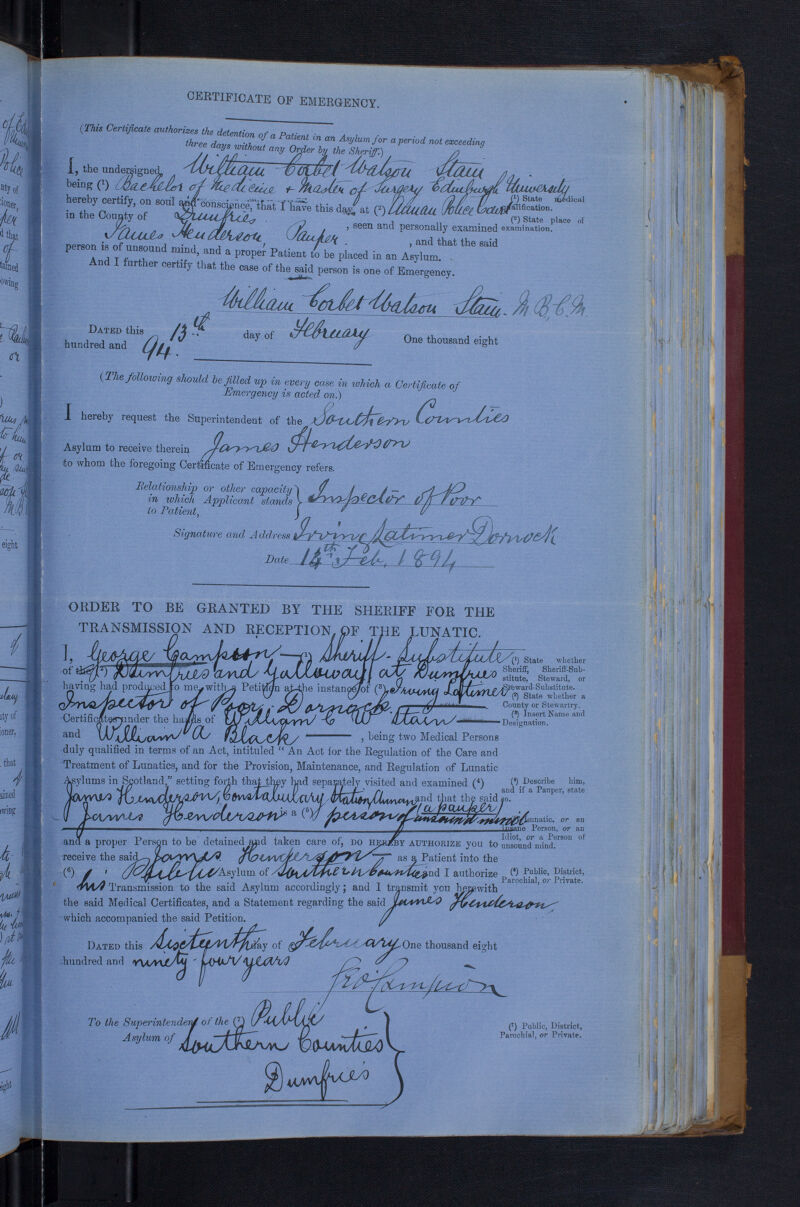 CERTIFICATE OF EMERGENCY.
(This Certificate authorizes the detention of a Patient in an Asylum for a period not exceeding
three days without any Order by the Sheriff.)
I, the undersigned, William Corbet Watson Stain
being (¹) Bachelor of Medicine + Master of Surgery Edinburgh University
hereby certify, on soul and conscience, that I have this day, at (²) Annan Police Court
(¹) State medical
qualification.
in the County of Dumfries
(²) State place of
examination.
James Henderson, Pauper. , seen and personally examined
, and that the said
person is of unsound mind, and a proper Patient to be placed in an Asylum.
And I further certify that the case of the said person is one of Emergency.
William Corbet Watson Stain. M.B, C.M.
DATED this 13th day of February One thousand eight
hundred and 94.
(The following should be filled up in every case in which a Certificate of
Emergency is acted on.)
I hereby request the Superintendent of the Southern Counties
Asylum to receive therein James Henderson
to whom the foregoing Certificate of Emergency refers.
Relationship or other capacity
in which Applicant stands
to Patient, } Inspector of Poor
Signature and Address Irving Latimer Dornock
Date 14th Feb. 1894
ORDER TO BE GRANTED BY THE SHERIFF FOR THE
TRANSMISSION AND RECEPTION OF THE LUNATIC.
I, George Campion — (¹) Sheriff-Substitute
of the (²) Dumfries and Galloway at Dumfries
(¹) State whether
Sheriff, Sheriff-Sub-
stitute, Steward, or
Steward-Substitute.
having had produced to me, with a Petition at the instance of (³) Irving Latimer
(²) State whether a
County or Stewartry.
Inspector of Poor, Dornock
(³) Insert Name and
Designation.
Certificates under the hands of William C W Stain —
and William A Black — , being two Medical Persons
duly qualified in terms of an Act, intituled "An Act for the Regulation of the Care and
Treatment of Lunatics, and for the Provision, Maintenance, and Regulation of Lunatic
Asylums in Scotland," setting forth that they had separately visited and examined (⁴)
(⁴) Describe him,
and if a Pauper, state
so.
James Henderson, Constabulary Station Annan and that the said
(a pauper)
James Henderson is a (⁵) person of unsound mind
Lunatic, or an
Insane Person, or an
Idiot, or a Person of
unsound mind.
and a proper Person to be detained and taken care of, DO HEREBY AUTHORIZE you to
receive the said James Henderson — as a Patient into the
(⁶) Public Asylum of Southern Counties and I authorize
(⁶) Public, District,
Parochial, or Private.
his Transmission to the said Asylum accordingly; and I transmit you herewith
the said Medical Certificates, and a Statement regarding the said James Henderson,
which accompanied the said Petition.
DATED this Sixteenth day of February One thousand eight
hundred and ninety-four years
Geo Campion
To the Superintendent of the (⁷) Public
(⁷) Public, District,
Parochial, or Private.
Asylum of Southern Counties
Dumfries